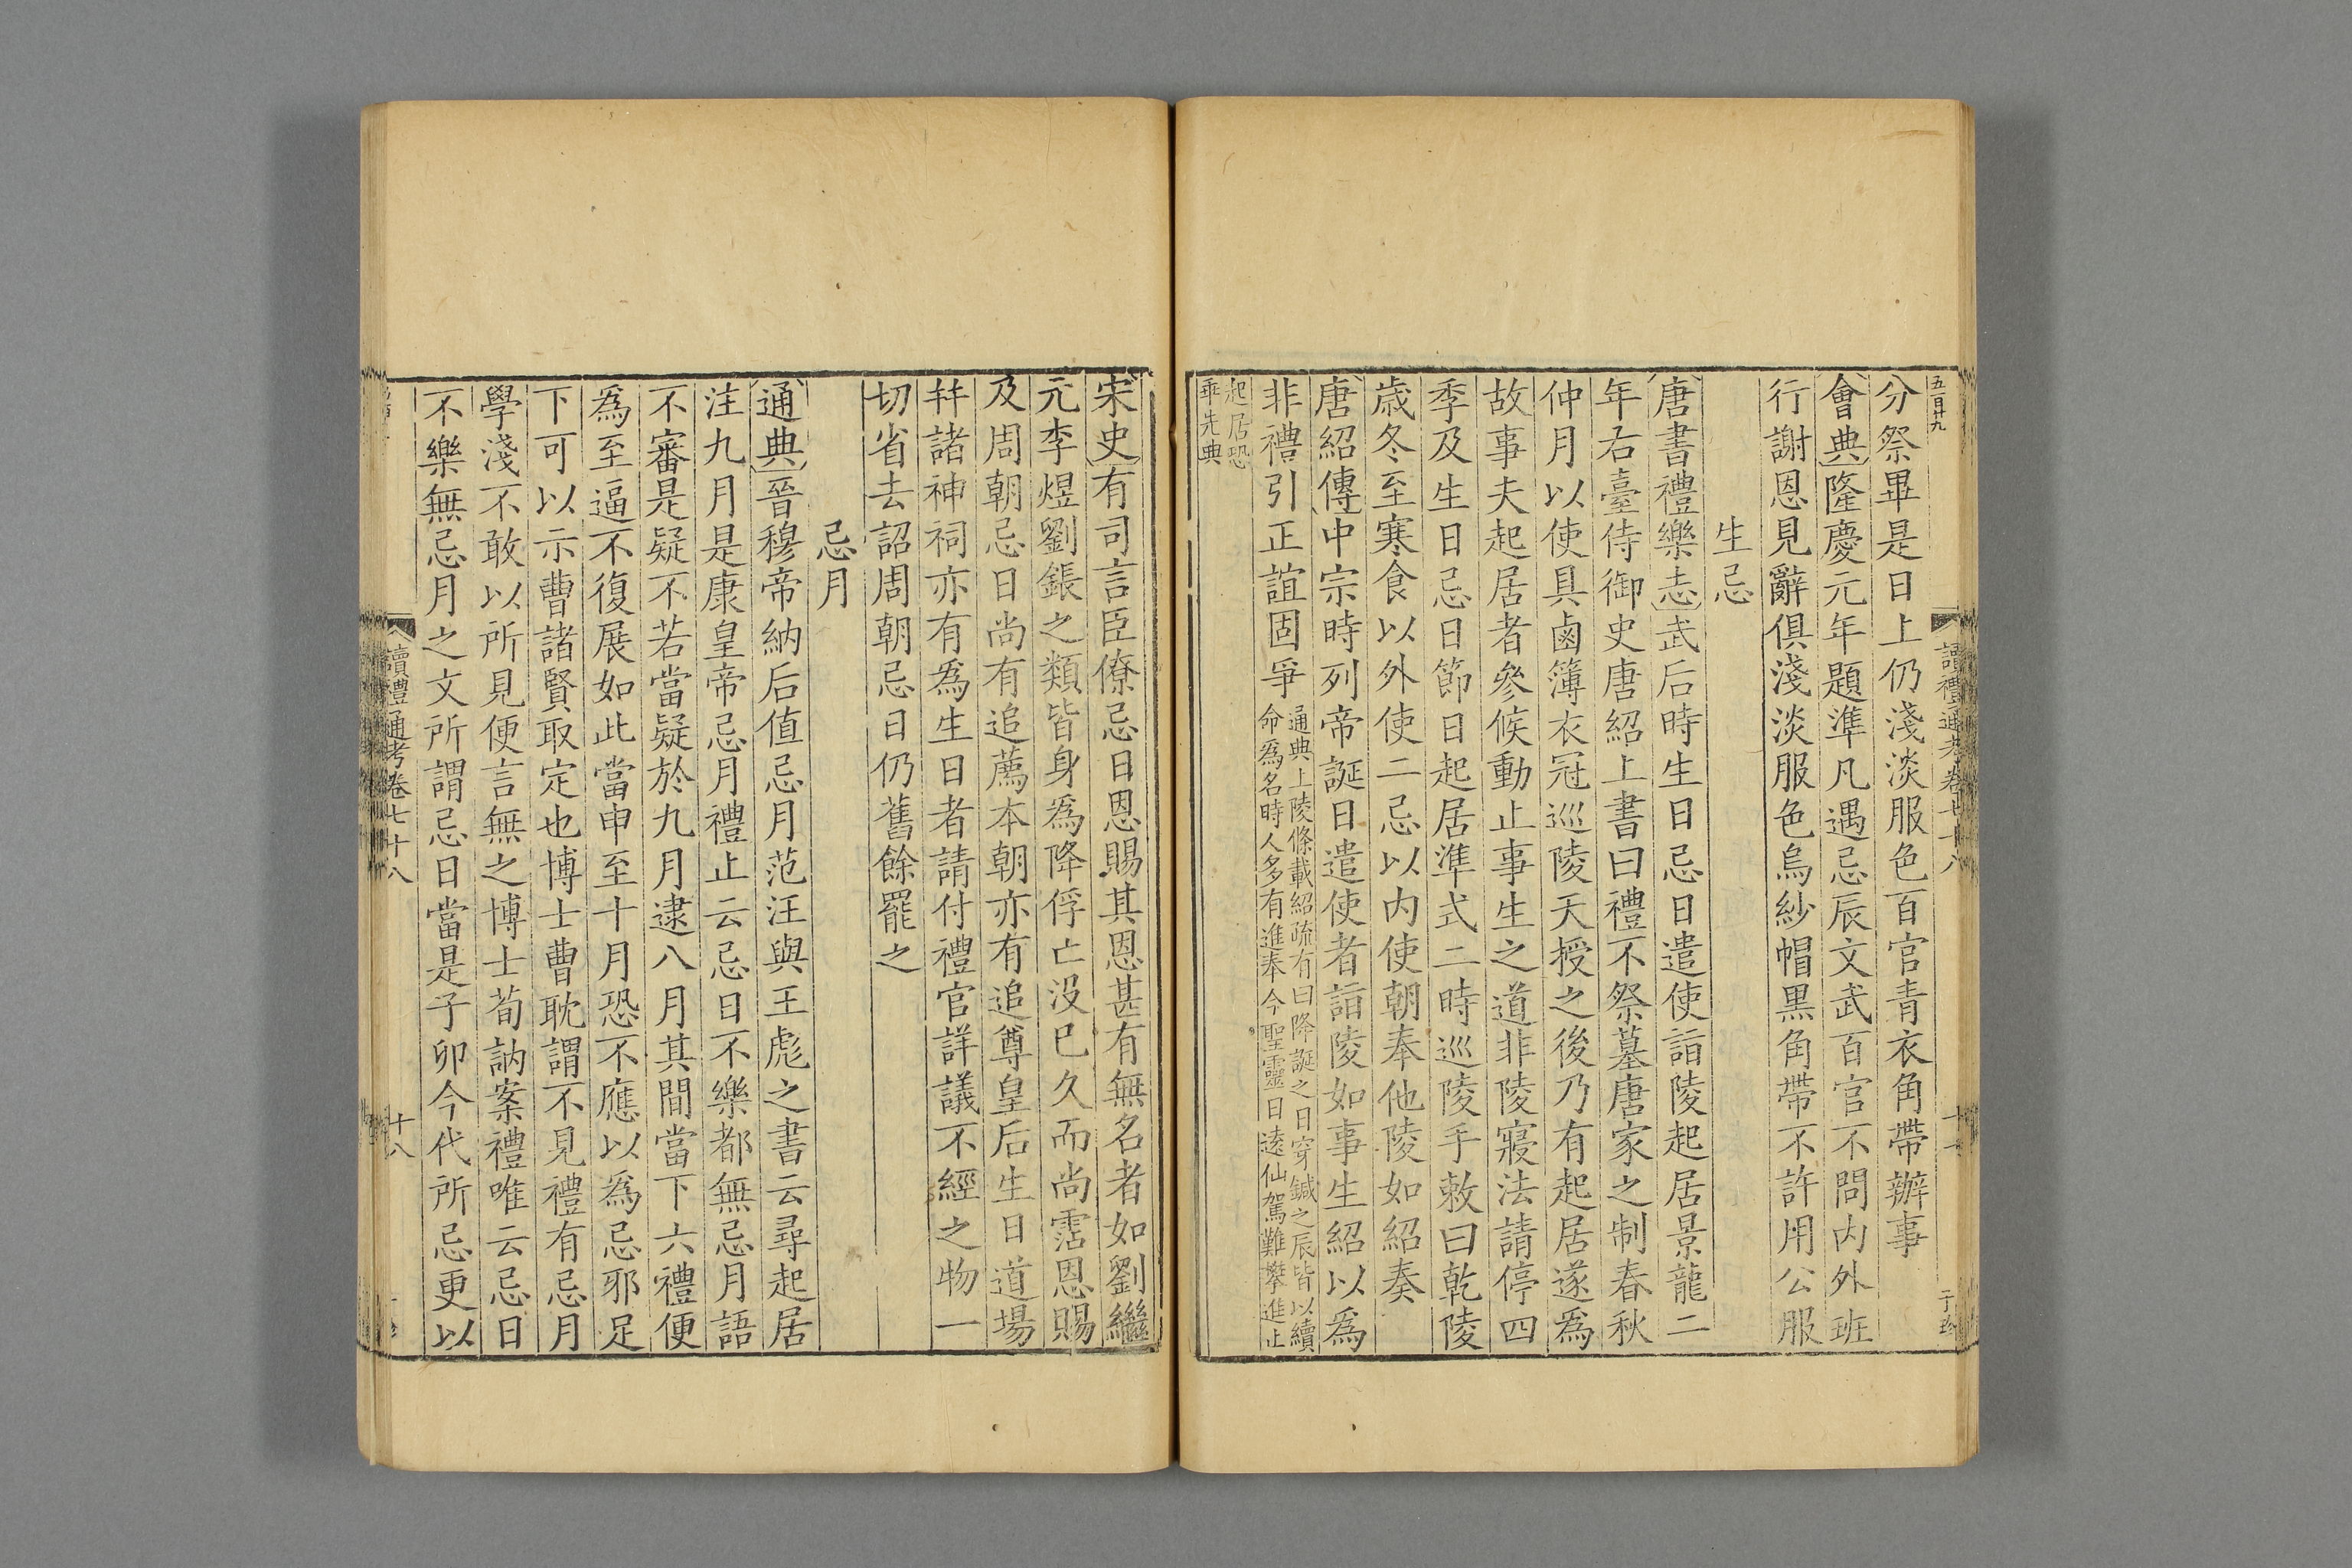 五百廿九
讀禮通考卷七十八
分祭畢是日上仍淺淡服色百官青衣角帶辦事
會典隆慶元年題準凡遇忌辰文武百官不問内外班
行謝恩見辭俱淺淡服色烏紗帽黒角帶不許用公服
生忌
唐書禮樂志武后時生日忌日遣使詣陵起居景龍二
年右臺侍御史唐紹上書曰禮不祭墓唐家之制春秋
仲月以使具鹵簿衣冠巡陵天授之後乃有起居遂爲
故事夫起居者參候動止事生之道非陵寢法請停四
季及生日忌日節日起居準式二時巡陵手敕曰乾陵
歳冬至寒食以外使二忌以内使朝奉他陵如紹奏
唐紹傳中宗時列帝誕日遣使者詣陵如事生紹以爲
非禮引正誼固爭
通典上陵條載紹疏有曰降誕之日穿鍼之辰皆以續
命爲名時人多有進奉今聖靈日遠仙駕難攀進止
起居恐
乖先典
宋史有司言臣僚忌日恩賜其恩甚有無名者如劉繼
元李煜劉鋹之類皆身爲降俘亡没巳久而尚霑恩賜
及周朝忌日尚有追薦本朝亦有追尊皇后生日道場
幷諸神祠亦有爲生日者請付禮官詳議不經之物一
切省去詔周朝忌日仍舊餘罷之
忌月
通典晉穆帝納后值忌月范汪與王彪之書云尋起居
注九月是康皇帝忌月禮止云忌日不樂都無忌月語
不審是疑不若當疑於九月逮八月其間當下六禮便
爲至逼不復展如此當申至十月恐不應以爲忌邪足
下可以示曹諸賢取定也博士曹耽謂不見禮有忌月
學淺不敢以所見便言無之博士荀訥案禮唯云忌日
不樂無忌月之文所謂忌日當是子卯今代所忌更以
讀禮通考卷七十八
十八